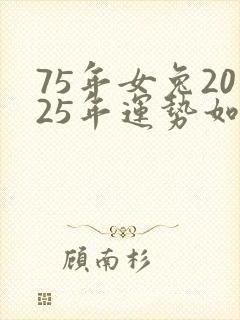 75年女兔20
25年運勢如
顧南杉